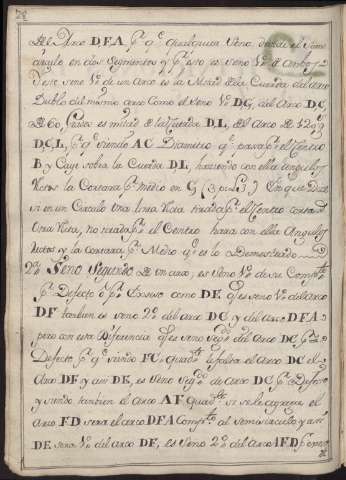 del Arco DFA p.r q.e qualquier Seno divide el Semi
circulo en dos Segmentos y p.r esto es seno 1.o de Ambos
Y este seno 1.o de un arco es la Mitad de la Cuerda del Arco
Dublo del mismo arco Como el seno 1.o DG, del Arco DC,
de 60, Grados es mitad de la Cuerda DL, del Arco de 120 g
DCL, p.r q.e siendo AC Diametro q.e pasa p.r el Centro
B y Caye sobre la Cuerda DL, haciendo con ella Angulos
Rectos la Cortara p.r medio en G (3 del 3,) En que Dice
si en un Circulo Una linea Recta tirada p.r el Centro cortare
Otra Recta, no tirada p.r el Centro hara con ella Angulos
Rectos y la cortara p.r Medio q.e es lo Demostrado
2.o Seno Segundo de un arco, es Seno 1.o de su Comp.to
p.r Defecto ó p.r Exceso como DE q.e es seno 1.o del arco
DF tambien es seno 2.o del arco DC y del Arco DFA
pero con esta Diferencia q.e es seno seg.do del Arco DC p.r
Defecto p.r q.e siendo FC quad.te le falta el Arco DC el
Arco DF y assi DE, es Seno Seg.do de Arco DC p.r Defecto
y siendo tambien el Arco AF quad.te si se le agrega el
Arco FD sera el arco DFA Comp.to al semicirculo y assi
DE seno 1.o del arco DF, es Seno 2.o del Arco AFD p.r